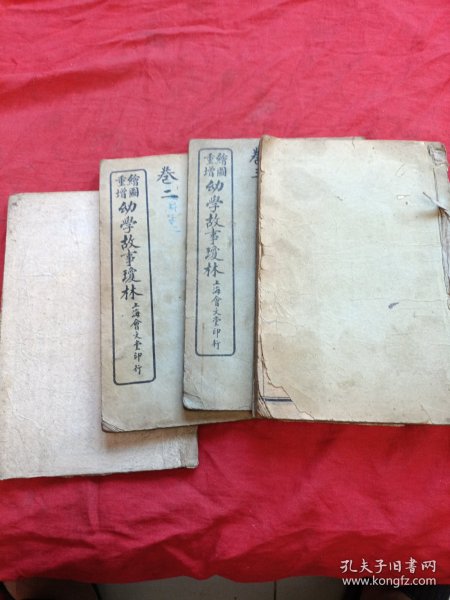 繪圖
重增
幼學故事瓊林
上海會文堂印行
卷二
繪圖
重增
幼學故事瓊林
上海會文堂印行
卷
孔夫子旧书网
www.kongfz.com